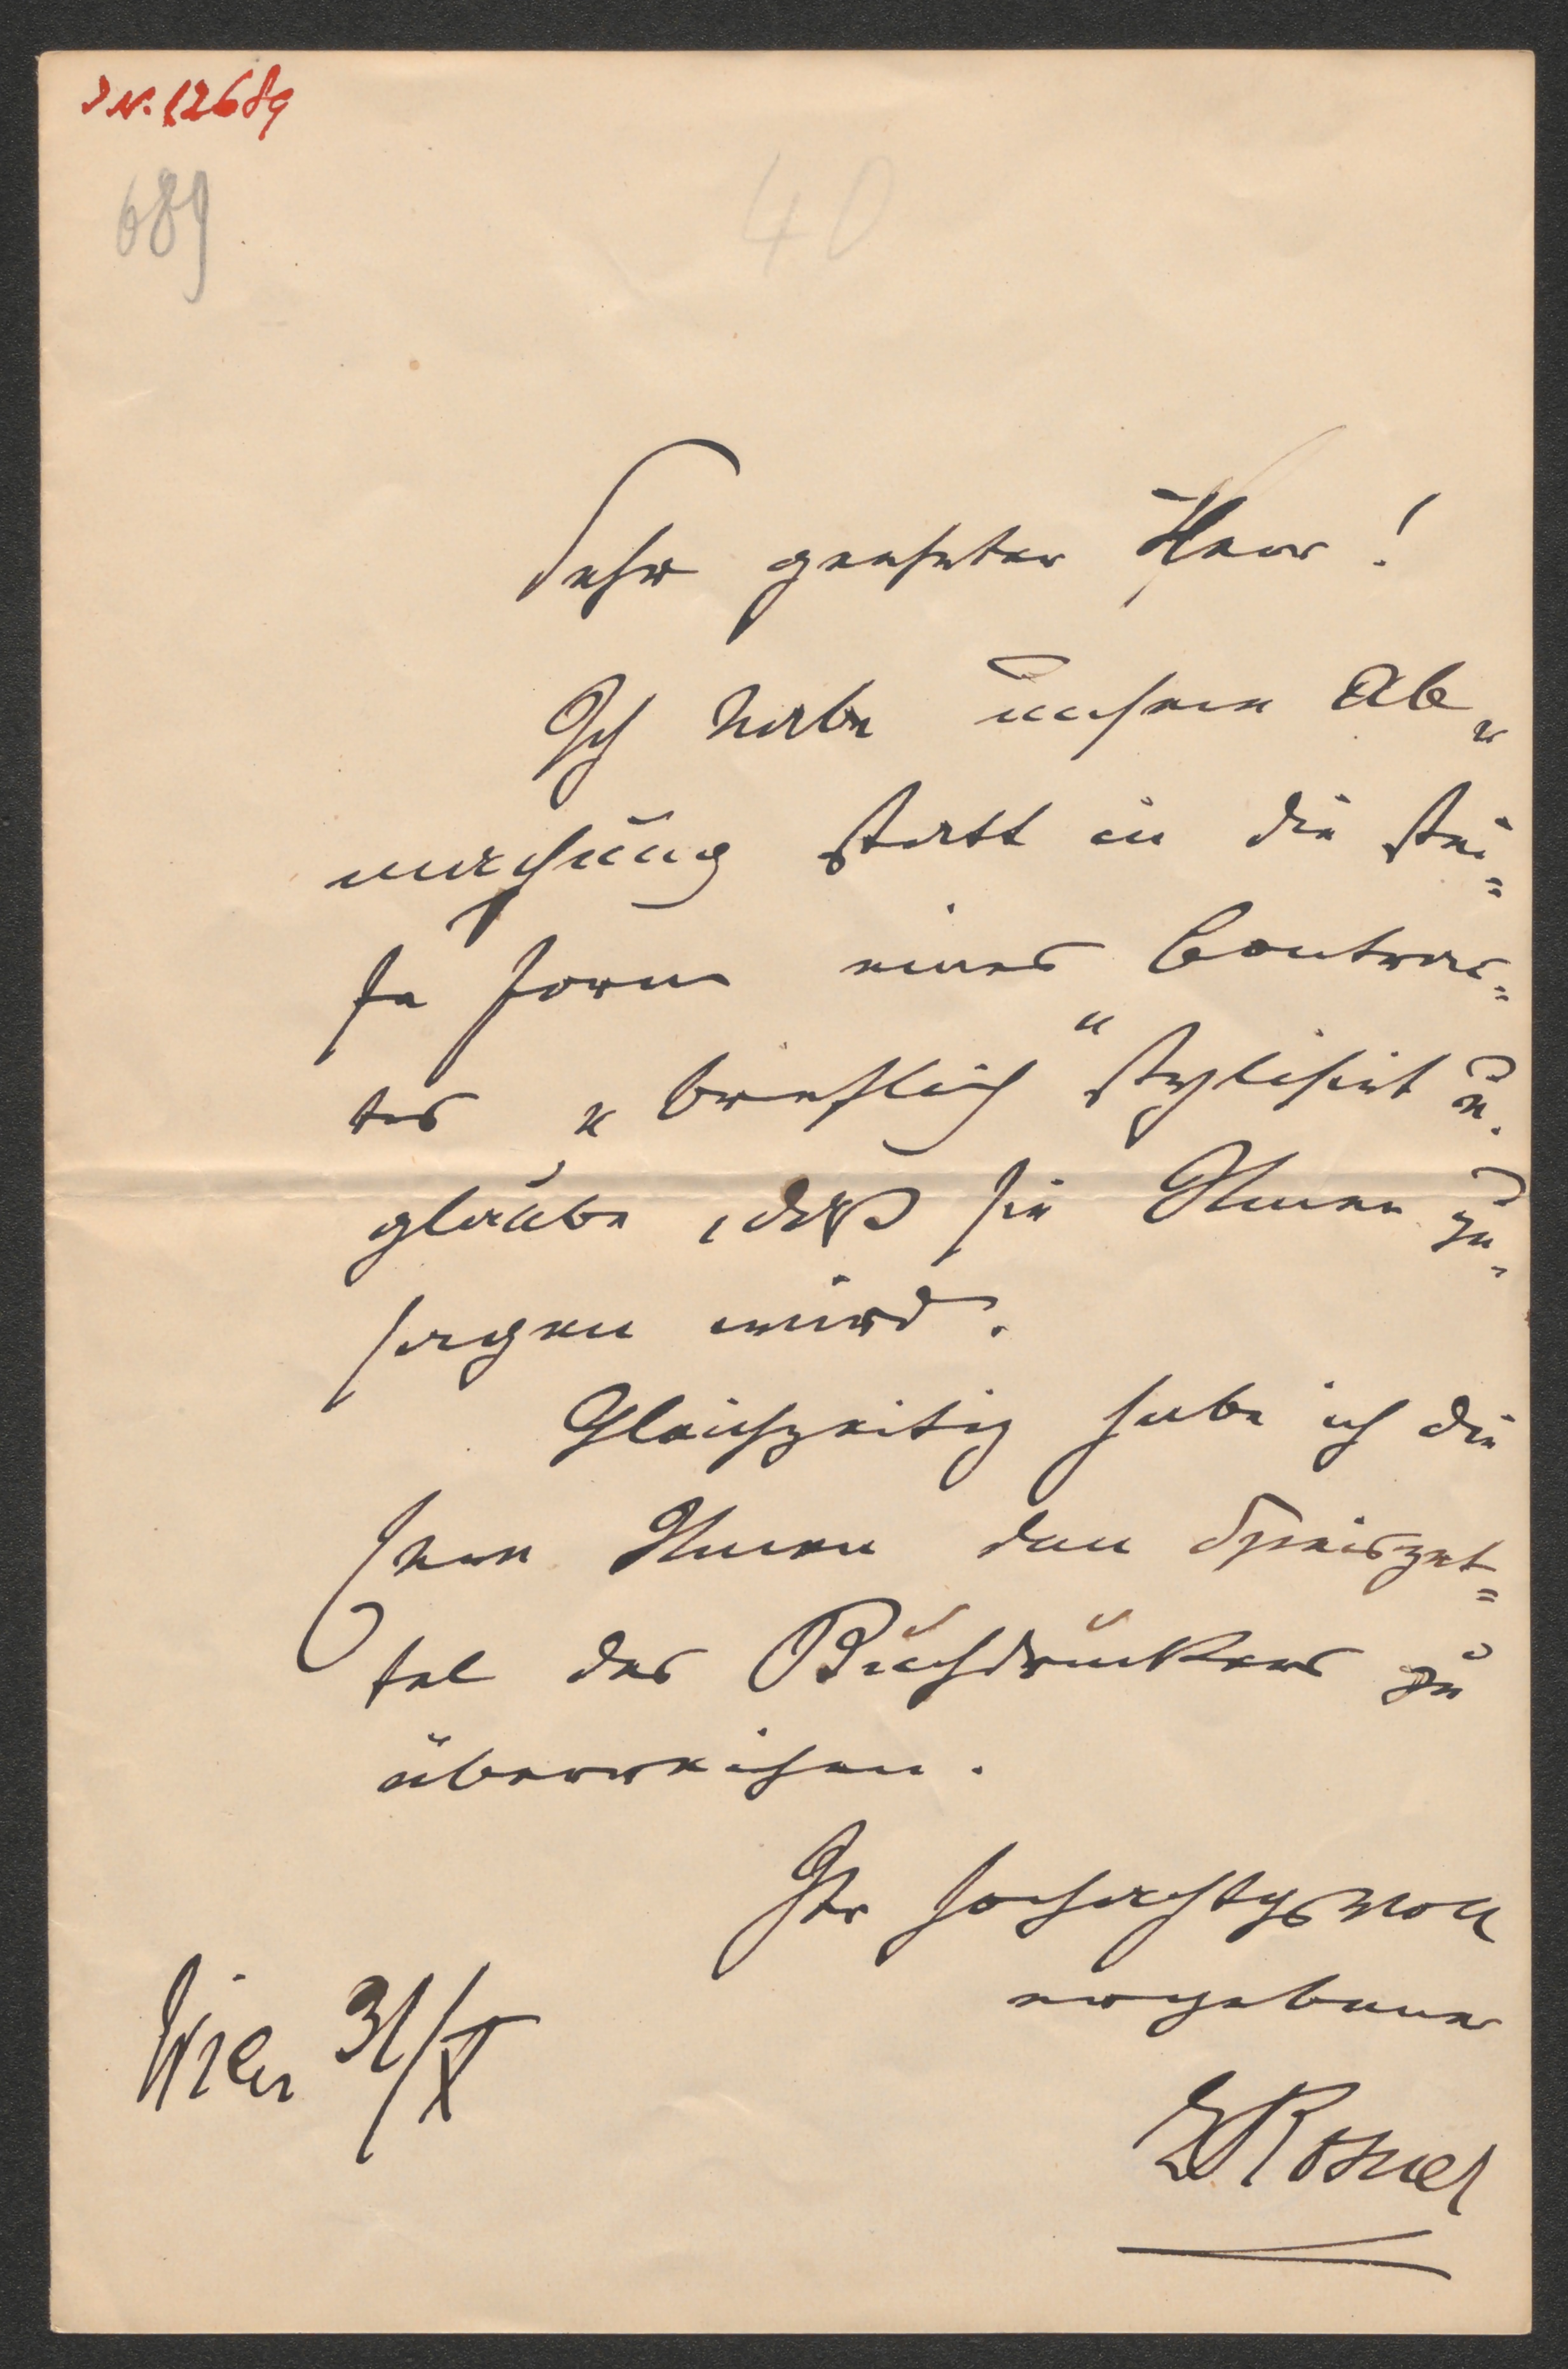 I N. 12689
689
40
Sehr geehrter Herr!
Ich habe unsere Ab„
machung statt in die stei=
fe Form eines Contrac=
tes „brieflich“ stylisirt u.
glaube, daß sie Ihnen zu„
sagen wird.
Gleichzeitig habe ich die
Ehre Ihnen den Speiszet=
tel des Buchdruckers zu
überweisen.
Ihr hochachtgsvoll
ergebener
LRosner
Wien 31/X